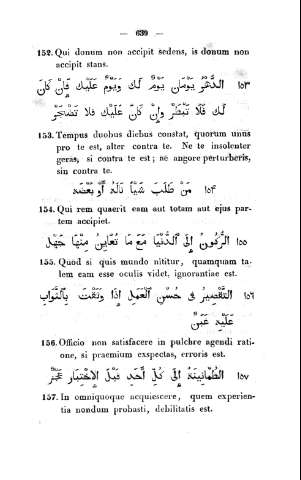 — 639 —
152. Qui donum non accipit sedens, is donum non
accipit stans.
١٥٣ الدَّهْرُ يَوْمَانِ يَوْمٌ لَكَ وَيَوْمٌ عَلَيْكَ فَإِنْ كَانَ
لَكَ فَلَا تَبْطَرْ وَإِنْ كَانَ عَلَيْكَ فَلَا تَضْجَرْ
153. Tempus duobus diebus constat, quorum unus
pro te est, alter contra te. Ne te insolenter
geras, si contra te est; ne angore perturberis,
sin contra te.
١٥٤ مَنْ طَلَبَ شَيْأً نَالَهُ أَوْ بَعْضَهُ
154. Qui rem quaerit eam aut totam aut ejus par-
tem accipiet.
١٥٥ الرُّكُونُ إِلَى الدُّنْيَا مَعَ مَا تُعَايِنُ مِنْهَا جَهْلٌ
155. Quod si quis mundo nititur, quamquam ta-
lem eam esse oculis videt, ignorantiae est.
١٥٦ التَّقْصِيرُ فِي حُسْنِ الْعَمَلِ إِذَا وَثِقْتَ بِالثَّوَابِ
عَلَيْهِ غَبْنٌ
156. Officio non satisfacere in pulchre agendi rati-
one, si praemium exspectas, erroris est.
١٥٧ الطُّمَانِينَةُ إِلَى كُلِّ أَحَدٍ قَبْلَ الْإِخْتِبَارِ عَجْزٌ
157. In omniquoque acquiescere, quem experien-
tia nondum probasti, debilitatis est.